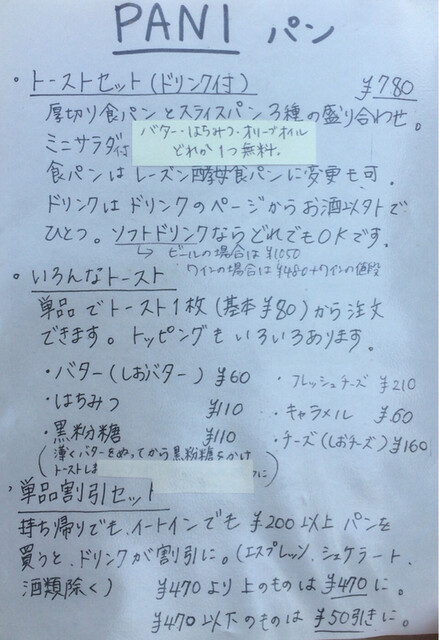 PANI パン
・トーストセット(ドリンク付) ¥780
厚切り食パンとスライスパン3種の盛り合わせ。
ミニサラダ付 バター・はちみつ・オリーブオイル
どれか1つ無料。
食パンはレーズン酵母食パンに変更も可。
ドリンクはドリンクのページからお酒以外で
ひとつ。ソフトドリンクならどれでもOKです。
→ ビールの場合は¥1050
ワインの場合は¥480+ワインの値段
・いろんなトースト
単品でトースト1枚(基本¥80)から注文
できます。トッピングもいろいろあります。
・バター(しおバター) ¥60 ・フレッシュチーズ ¥210
・はちみつ ¥110 ・キャラメル ¥60
・黒粉糖 ¥110 ・チーズ(しおチーズ) ¥160
(薄くバターをぬってから黒粉糖をかけ
トーストしま
・単品割引セット
持ち帰りでも、イートインでも ¥200以上 パンを
買うと、ドリンクが割引に。(エスプレッソ、シェケラート、
酒類除く) ¥470より上のものは¥470に。
¥470以下のものは¥50引きに。